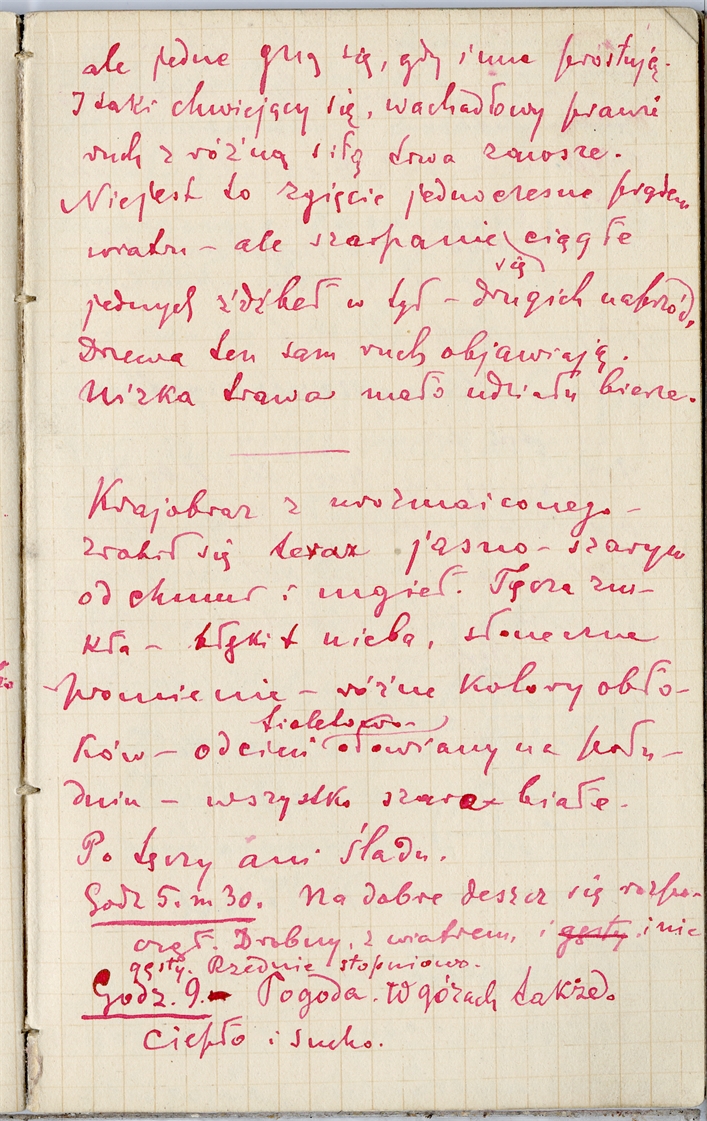 ale jedne gną się, gdy inne prostują.
I taki chwiejący się, wachadłowy prawie
ruch z różną siłą trwa zawsze.
Niejest to zgięcie jednoczesne prądem
wiatru – ale szarpanie się ciągłe
jednych źdźbeł w tył – drugich naprzód,
Drzewa ten sam ruch objawiają.
Nizka trawa mało udziału bierze.
Krajobraz z urozmaiconego –
zrobił się teraz jasno-szarym
od chmur i mgieł. Tęcza zni-
kła – błękit nieba, słoneczne
promienie – różne kolory obło-
ków – odcień fioletowo-ołowiany na połu-
dniu – wszystko szare białe.
Po tęczy ani śladu.
Godz 5. m 30. Na dobre deszcz się rozpo-
czął. Drobny, z wiatrem, i gęsty i nie
gęsty. Rzednie stopniowo.
Godz. 9. – Pogoda. W górach także.
Ciepło i sucho.